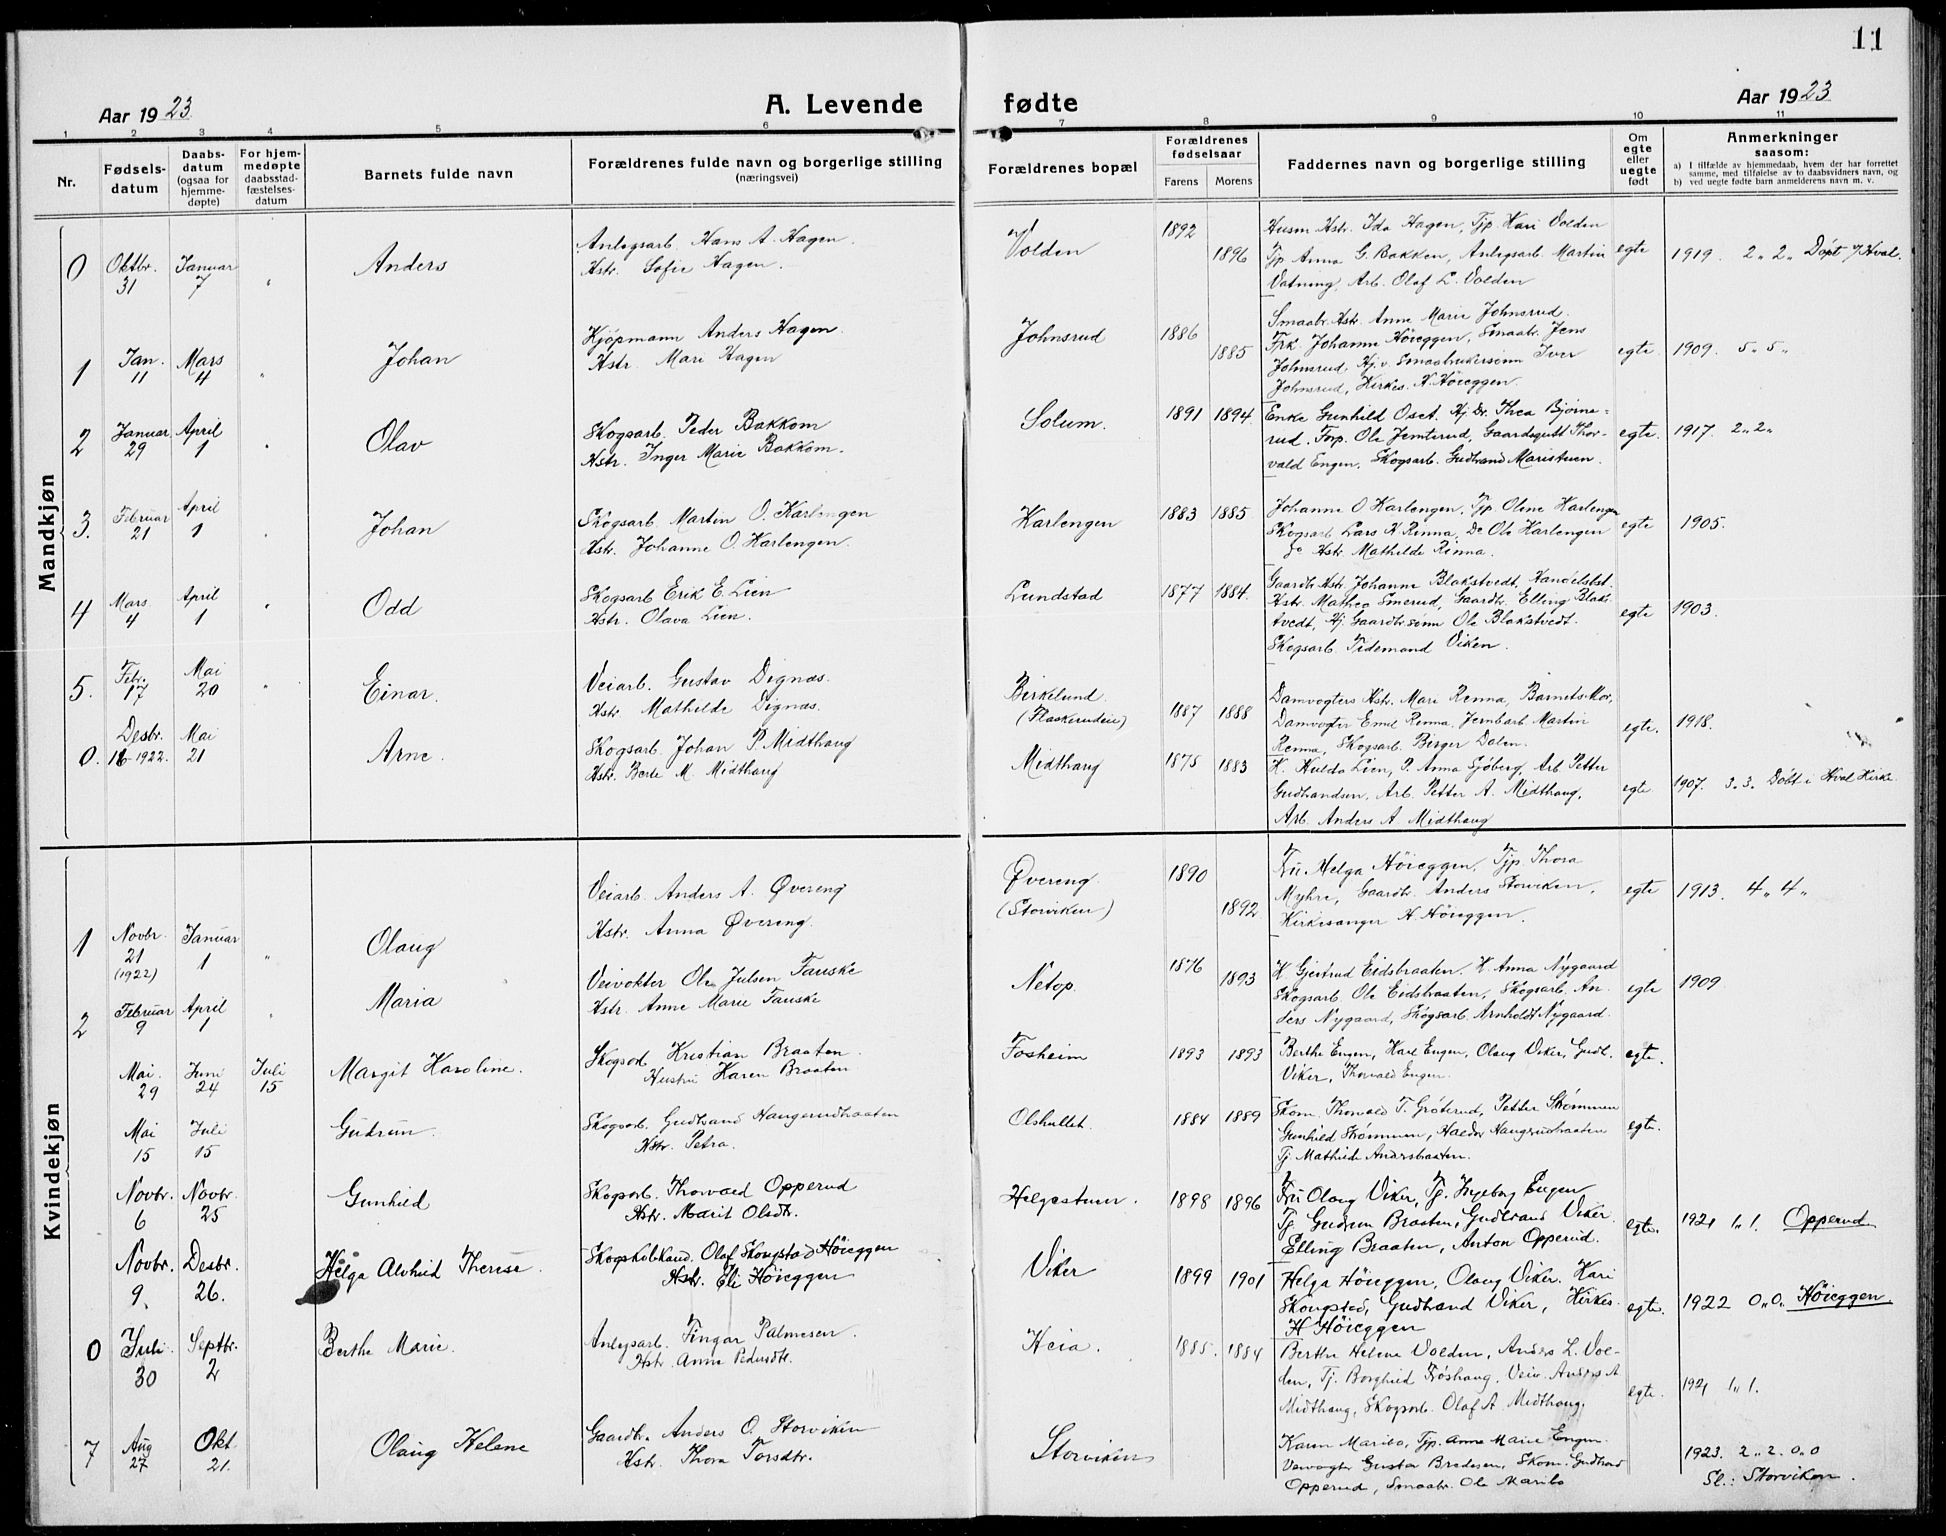 11
Aar 1923 A. Levende fødte Aar 1923
1 2 3 4 5 6 7 8 9 10 11
Nr.
Fødsels-
datum
Daabs-
datum
(ogsaa for
hjemme-
døpte)
For hjem-
medøpte
daabsstad-
fæstelses-
datum
Barnets fulde navn
Forældrenes fulde navn og borgerlige stilling
(næringsvei)
Forældrenes bopæl
Forældrenes
fødselsaar
Farens Morens
Faddernes navn og borgerlige stilling
Om
egte
eller
uegte
født
Anmerkninger
saasom:
a) I tilfælde av hjemmedaab, hvem der har forrettet
samme, med tilføielse av to daabsvidners navn, og
b) ved uegte fødte barn anmelderens navn m. v.
Mandkjøn
0 Oktbr. 31 Januar 7 " Anders
Anlegsarb. Hans A. Hagen.
Hstr. Sofie Hagen.
Volden 1892 1896
Husm. Hstr. Ida Hagen, Tjp. Kari Volden
Tjp. Anna G. Bakken, Anlegsarb. Martin
Vatning, Arb. Olaf L. Volden
egte 1919. 2 " 2 " Døpt i Hval.
1 Jan. 11 Mars 4 " Johan
Kjøpmann Anders Hagen.
Hstr. Mari Hagen
Johnsrud 1886 1885
Smaabr. Hstr. Anne Marie Johnsrud.
Frk. Johanne Höieggen, Smaabr. Jens
Johnsrud, Hj.v. Smaabrukersönn Iver
Johnsrud, Kirkes. H. Höieggen.
egte. 1909. 5 " 5 "
2 Januar 29 April 1 " Olav
Skogsarb. Peder Bakkom
Hstr. Inger Marie Bakkom.
Solum. 1891 1894
Enke Gunhild Oset. Hj. Dr. Thea Bjørne-
rud. Forp. Ole Jemterud, Gaardsgutt Thor-
vald Engen, Skogsarb. Gudbrand Maristuen.
egte. 1917. 2 " 2 "
3. Februar 21 April 1 Johan
Skogsarb. Martin O. Karlengen
Hstr. Johanne O. Karlengen.
Karlengen 1883 1885
Johanne O Karlengen, Tjp. Oline Karlengen
Skogsarb Lars K. Renna, Do Ole Karlengen
do Hstr. Mathilde Renna.
egte 1905.
4 Mars 4 April 1 " Odd
Skogsarb Erik E. Lien
Hstr. Olava Lien.
Lundstad 1877 1884.
Gaardbr. Hstr. Johanne Blakstvedt, Handelsbst.
Hstr. Mathea Smerud, Gaardbr. Elling Blak-
stvedt, Hj. Gaardbr.sønn Ole Blakstvedt.
Skogsarb. Tidemand Viken.
egte 1903.
5. Febr. 17 Mai 20 " Einar.
Veiarb. Gustav Dignæs.
Hstr. Mathilde Dignæs.
Birkelund
(Flaskerudeie) 1887 1888
Damvogters Hstr. Mari Renna, Barnets Mor,
Damvogter Emil Renna, Jernbarb Martin
Renna, Skogsarb. Birger Dolen.
egte. 1918.
0. Desbr. 16-1922. Mai 21 Arne.
Skogsarb. Johan P. Midthaug
Hstr. Berte M Midthaug
Midthaug 1875 1883
K. Hulda Lien, P. Anna Sjöberg, Arb. Petter
Gudbrandsen, Arb. Petter A. Midthaug,
Arb. Anders A Midthaug
egte. 1907. 3 " 3. Döbt i Hval Kirke
Kvindekjøn
1 Novbr. 21 (1922) Januar 1 " Olaug
Veiarb. Anders A. Øvereng
Hstr. Anna Øvereng.
Øvereng.
(Storviken) 1890 1892
Fru Helga Höieggen, Tjp. Thora
Myhre, Gaardbr. Anders Storviken,
Kirkesanger H. Höieggen.
egte 1913. 4 " 4 "
2 Februar 9 April 1 Maria
Veivokter Ole Julsen Fauske
Hstr. Anne Marie Fauske
Netop. 1876 1893
K. Gjertrud Eidsbraaten. K. Anna Nygaard
Skogsarb. Ole Eidsbraaten, Skogsarb. An-
ders Nygaard, Skogsarb. Arnholdt Nygaard.
egte 1909
Mai 29 Juni 24 Juli 15 Margit Karoline.
Skogsarb. Kristian Braaten.
Hustru Karen Braaten
Fosheim 1893 1893
Berthe Engen, Karl Engen, Olaug Viker, Gudb.
Viker, Thorvald Engen.
egte.
Mai 15 Juli 15 Gudrun.
Skogsarb. Gudbrand Haugerudbraaten
Hstr. Petra.
Olshullet. 1884 1889
Skom. Thorvald T. Gröterud, Petter Skømmen
Gunhild Skømmen, Haldor Haugrudbraaten
Tj. Mathilde Andersbraaten.
egte.
Novbr. 6 Novbr. 25 Gunhild
Skogsarb. Thorvald Opperud
Hstr. Marit Olsdtr.
Helgestuen. 1898 1896
Fru Olaug Viker, Tj. Ingeborg Engen
Tj. Gudrun Braaten, Gudbrand Viker.
Elling Braaten, Anton Opperud.
egte. 1921 1 " 1. Opperud
Novbr. 9. Desbr. 26. Helga Alvhild Therese.
Skogskulkand. Olaf Skougstad Höieggen
Hstr. Eli Höieggen
Viker 1899 1901
Helga Höieggen, Olaug Viker. Kari
Skougstad, Gudbrand Viker, Kirkes.
H Höieggen
egte. 1922 0 " 0 " Höieggen
0 Juli 30 Septbr. 2 Berthe Marie.
Anlegsarb. Fingar Palmesen.
Hstr. Anne Pedersdtr.
Heia. 1885. 1884
Berthe Helene Volden, Anders L. Vol-
den, Tj. Borghild Fröshaug, Veiv. Anders A
Midthaug, Skogsarb. Olaf A. Midthaug.
egte. 1921 1 " 1.
7 Aug 27 Okt. 21. Olaug Helene
Gaardbr. Anders O. Storviken
Hstr. Thora Torsdtr.
Storviken
Karen Maribo, Tjp. Anne Marie Engen.
Veivogter Gustav Bredesen, Skom. Gudbrand
Opperud, Smaabr. Ole Maribo
1923. 2 " 2. 0 " 0
Sl.: Storviken.